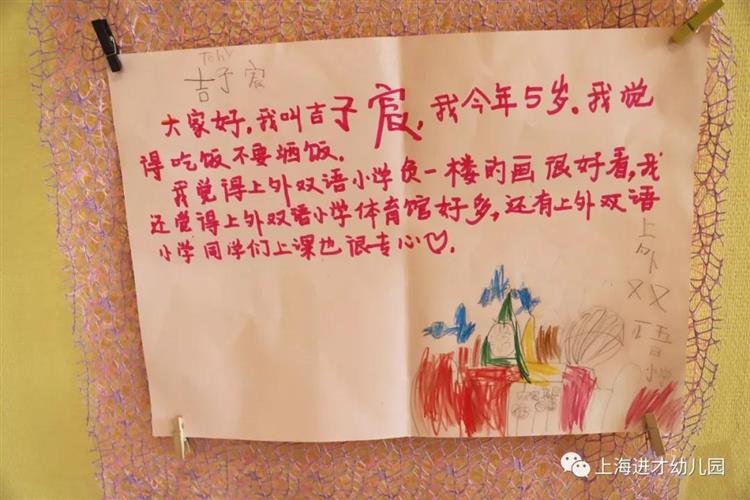 Tony
吉子宸
大家好,我叫吉子宸,我今年5岁。我觉
得吃饭不要晒饭。
我觉得上外双语小学负一楼的画很好看,我
还觉得上外双语小学体育馆好多,还有上外双语
小学同学们上课也很专心♡.
上外双语小学
上海进才幼儿园